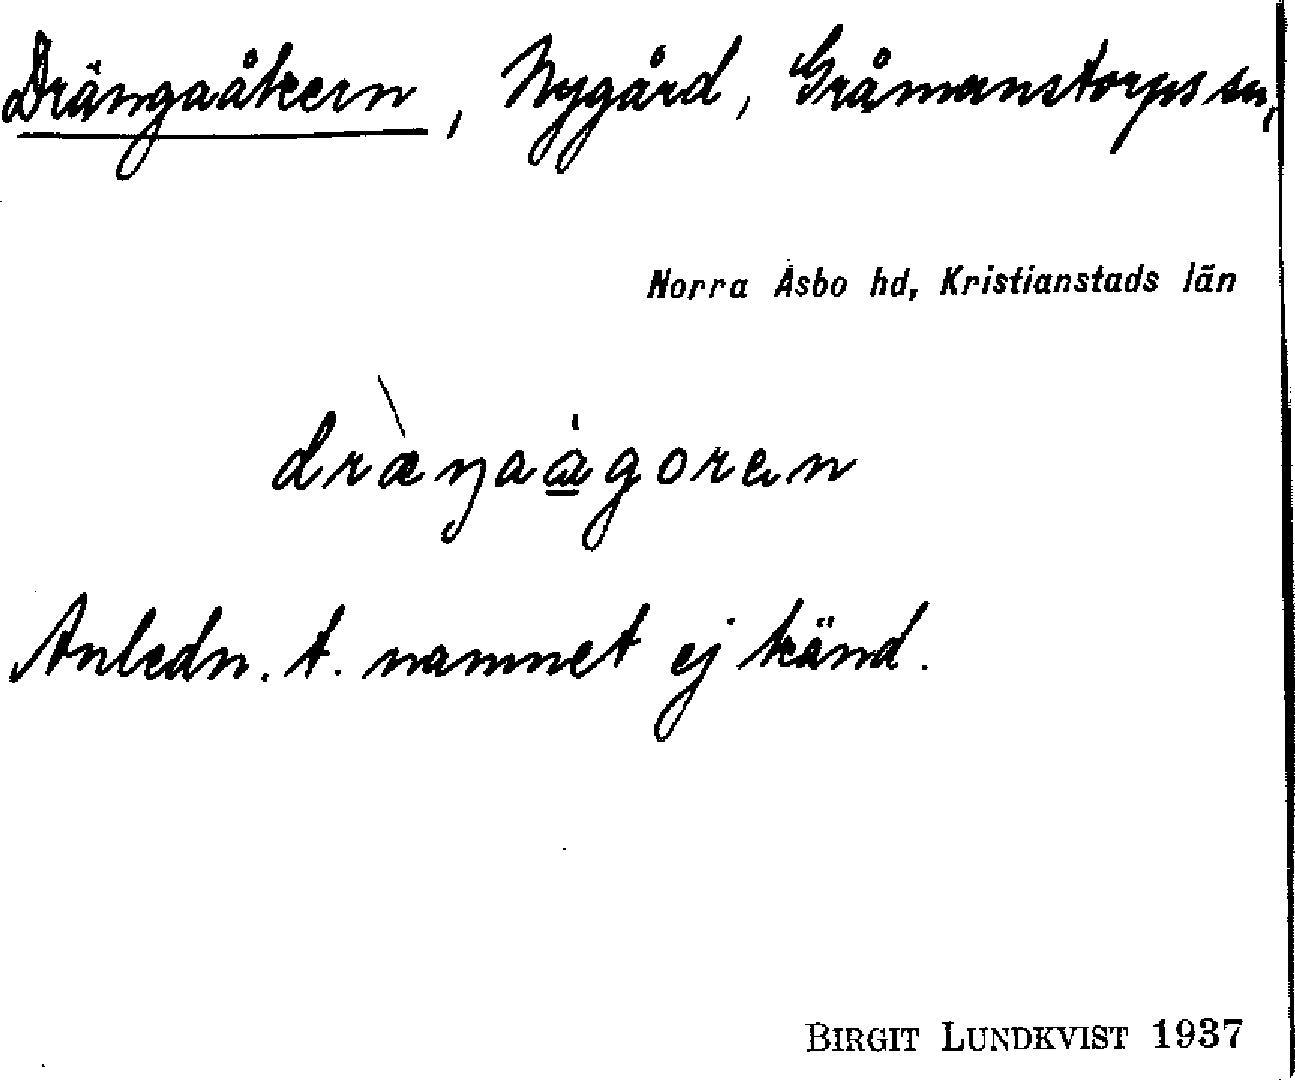 Drängaåkern, Nygård, Gråmanstorps sn,
Norra Åsbo hd, Kristianstads län
dræ̀ŋaågorɐn
Anledn. t. namnet ej känd.
BIRGIT LUNDKVIST 1937